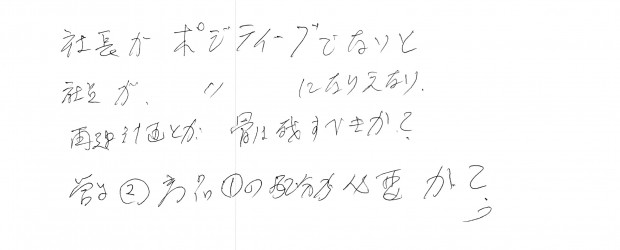 社長がポジティーブでないと
社員が、 〃 になりえない.
計画とか 骨は残すべきか?
②商品①の配分が必要か?